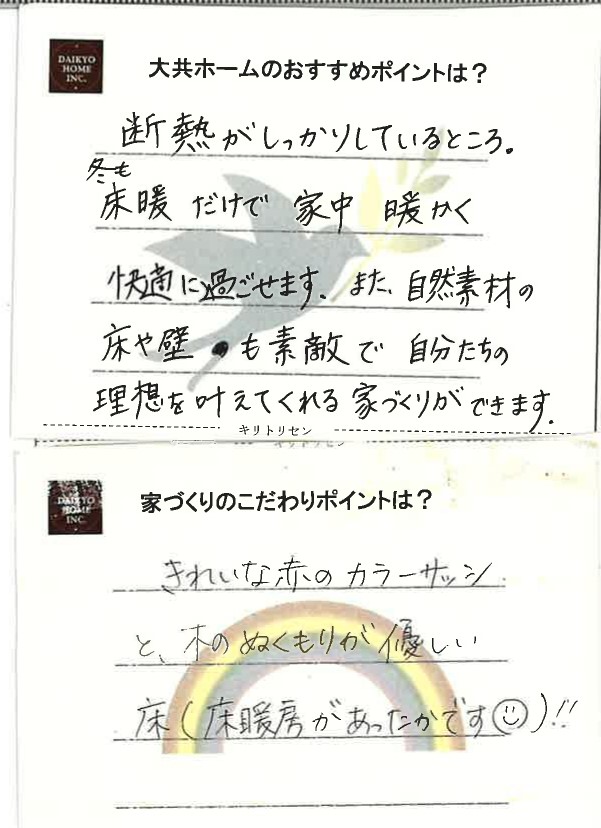 DAIKYO
HOME
INC.
大共ホームのおすすめポイントは？
断熱がしっかりしているところ。
冬も
床暖 だけで 家中 暖かく
快適に過ごせます。また、自然素材の
床や壁 も素敵で 自分たちの
理想を叶えてくれる家づくりができます。
キリトリセン
キリトリセン
DAIKYO
HOME
INC.
家づくりのこだわりポイントは？
きれいな赤のカラーサッシ
と、木のぬくもりが優しい
床(床暖房があったかです☺)!!